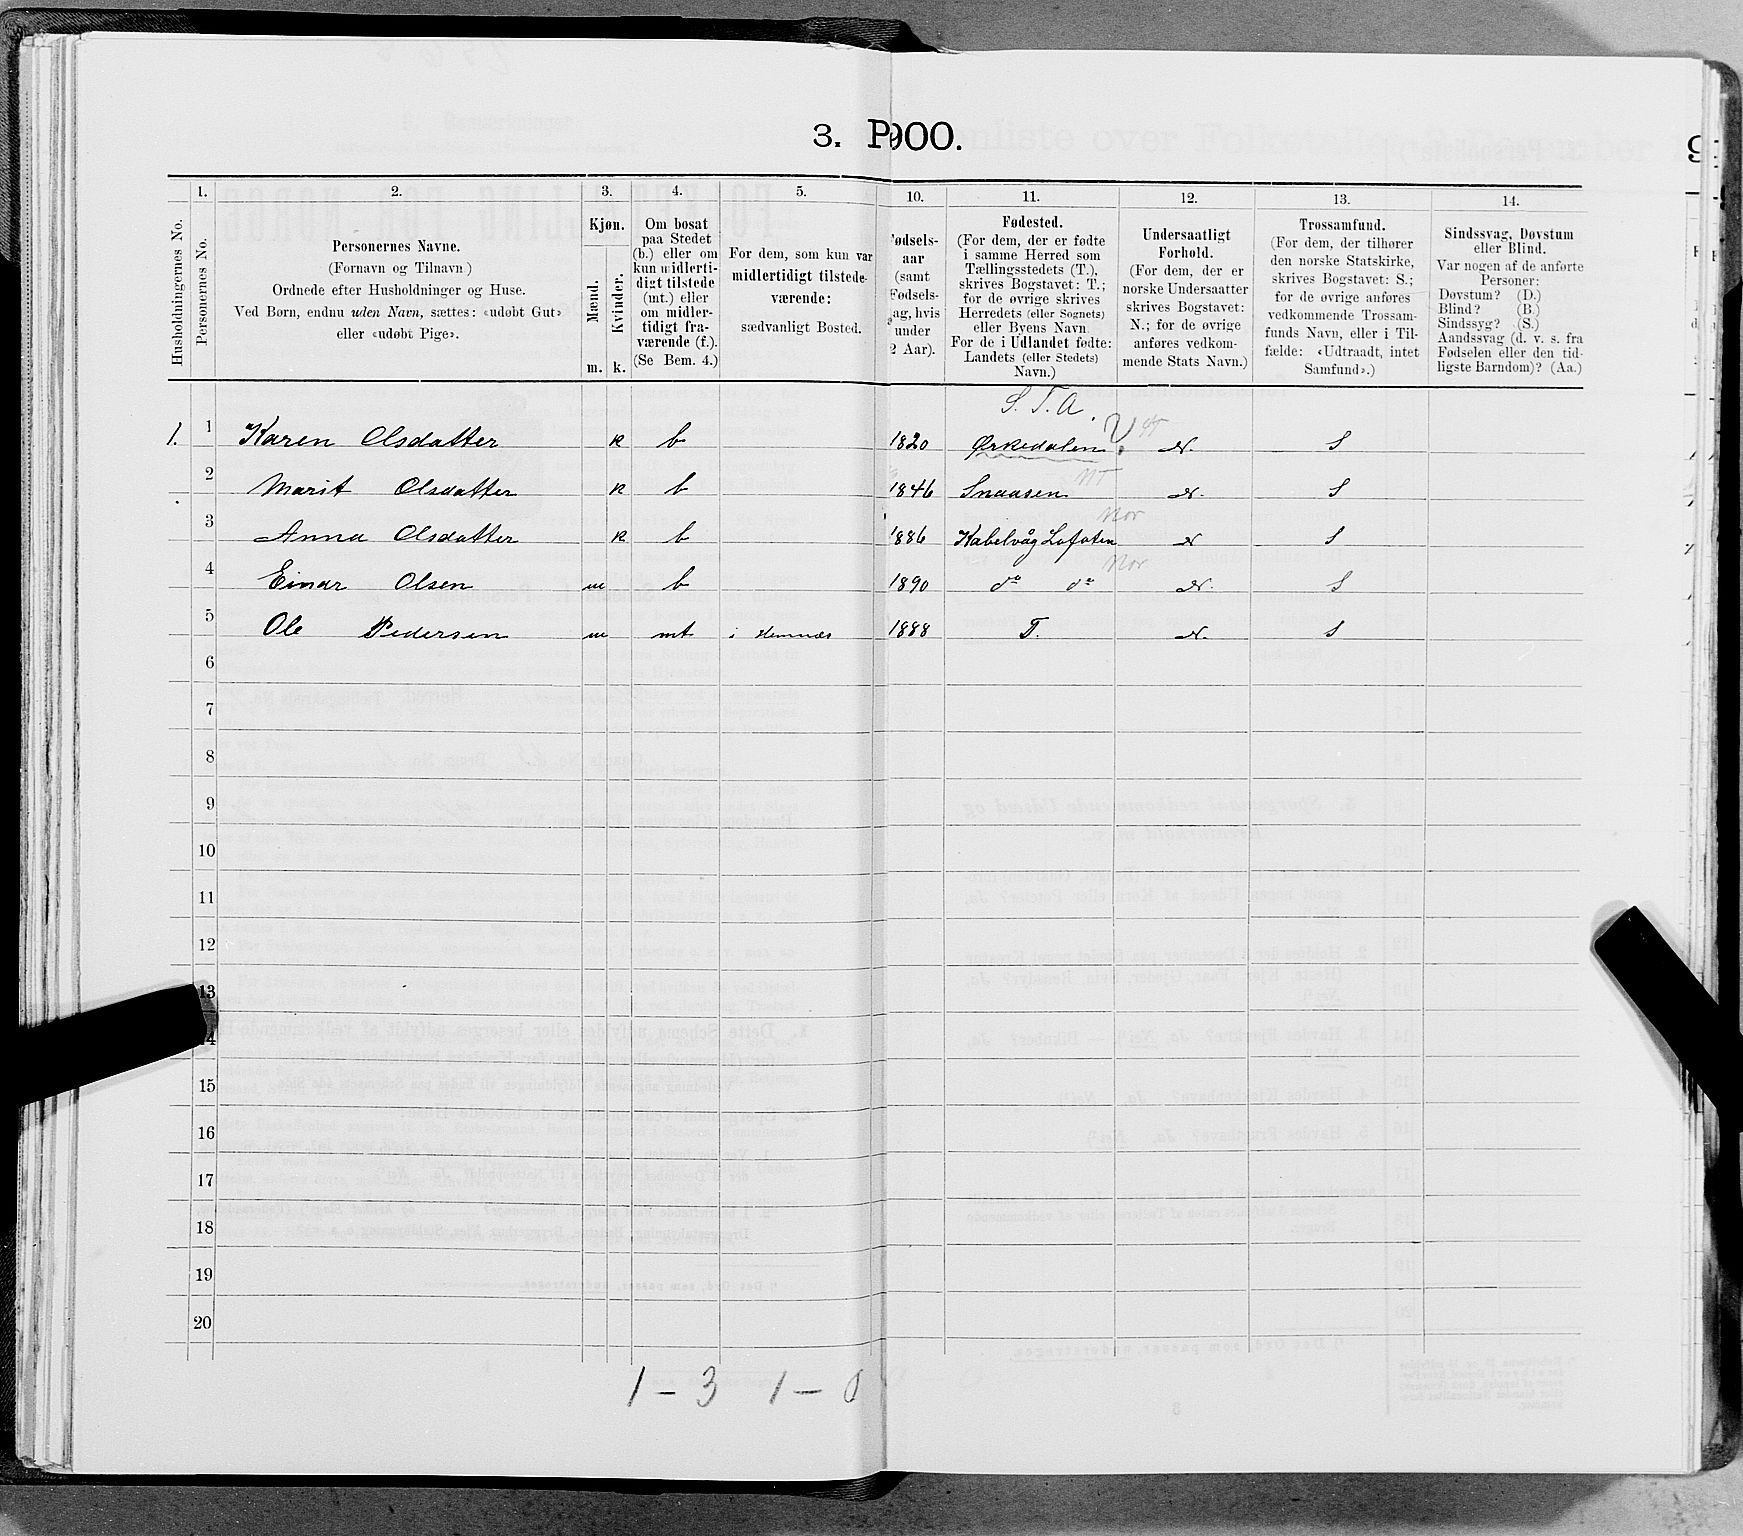 3. P900.
1. 2. 3. 4. 5. 10. 11. 12. 13. 14.
Husholdningernes No.
Personernes No.
Personernes Navne.
(Fornavn og Tilnavn)
Ordnede efter Husholdninger og Huse.
Ved Børn, endnu uden Navn, sættes: «udøbt Gut»
eller «udøbt Pige».
Kjøn.
Mænd.
Kvinder.
m. k.
Om bosat
paa Stedet
(b.) eller om
kun midlerti-
digt tilstede
(mt.) eller
om midler-
tidigt fra-
værende (f.).
(Se Bem. 4.)
For dem, som kun var
midlertidigt tilstede-
værende:
sædvanligt Bosted.
ødsels-
aar
(samt
Fødsels-
ag, hvis
under
2 Aar).
Fødested.
(For dem, der er fødte
i samme Herred som
Tællingsstedets (T.),
skrives Bogstavet: T.;
for de øvrige skrives
Herredets (eller Sognets)
eller Byens Navn.
For de i Udlandet fødte:
Landets (eller Stedets)
Navn.)
Undersaatligt
Forhold.
(For dem, der er
norske Undersaatter
skrives Bogstavet:
N.; for de øvrige
anføres vedkom-
mende Stats Navn.)
Trossamfund.
(For dem, der tilhører
den norske Statskirke,
skrives Bogstavet: S.;
for de øvrige anføres
vedkommende Trossam-
funds Navn, eller i Til-
fælde: «Udtraadt, intet
Samfund».)
Sindssvag, Døvstum
eller Blind.
Var nogen af de anførte
Personer:
Døvstum? (D.)
Blind? (B.)
Sindssyg? (S.)
Aandssvag (d. v. s. fra
Fødselen eller den tid-
ligste Barndom)? (Aa.)
S. T. A.
1. 1 Karen Olsdatter k b 1820 Ørkedalen ? ST N. S
2 Marit Olsdatter k b 1846 Snaasen NT N. S
3 Anna Olsdatter k b 1886 Kabelvåg Lofoten Nor N S
4 Einar Olsen m b 1890 do do Nor N. S
5 Ole Pedersen m mt i Hemnæs 1888 T. N. S
6
7
8
9
10
11
12
13
14
15
16
17
18
19
20
1 – 3 1 – 0